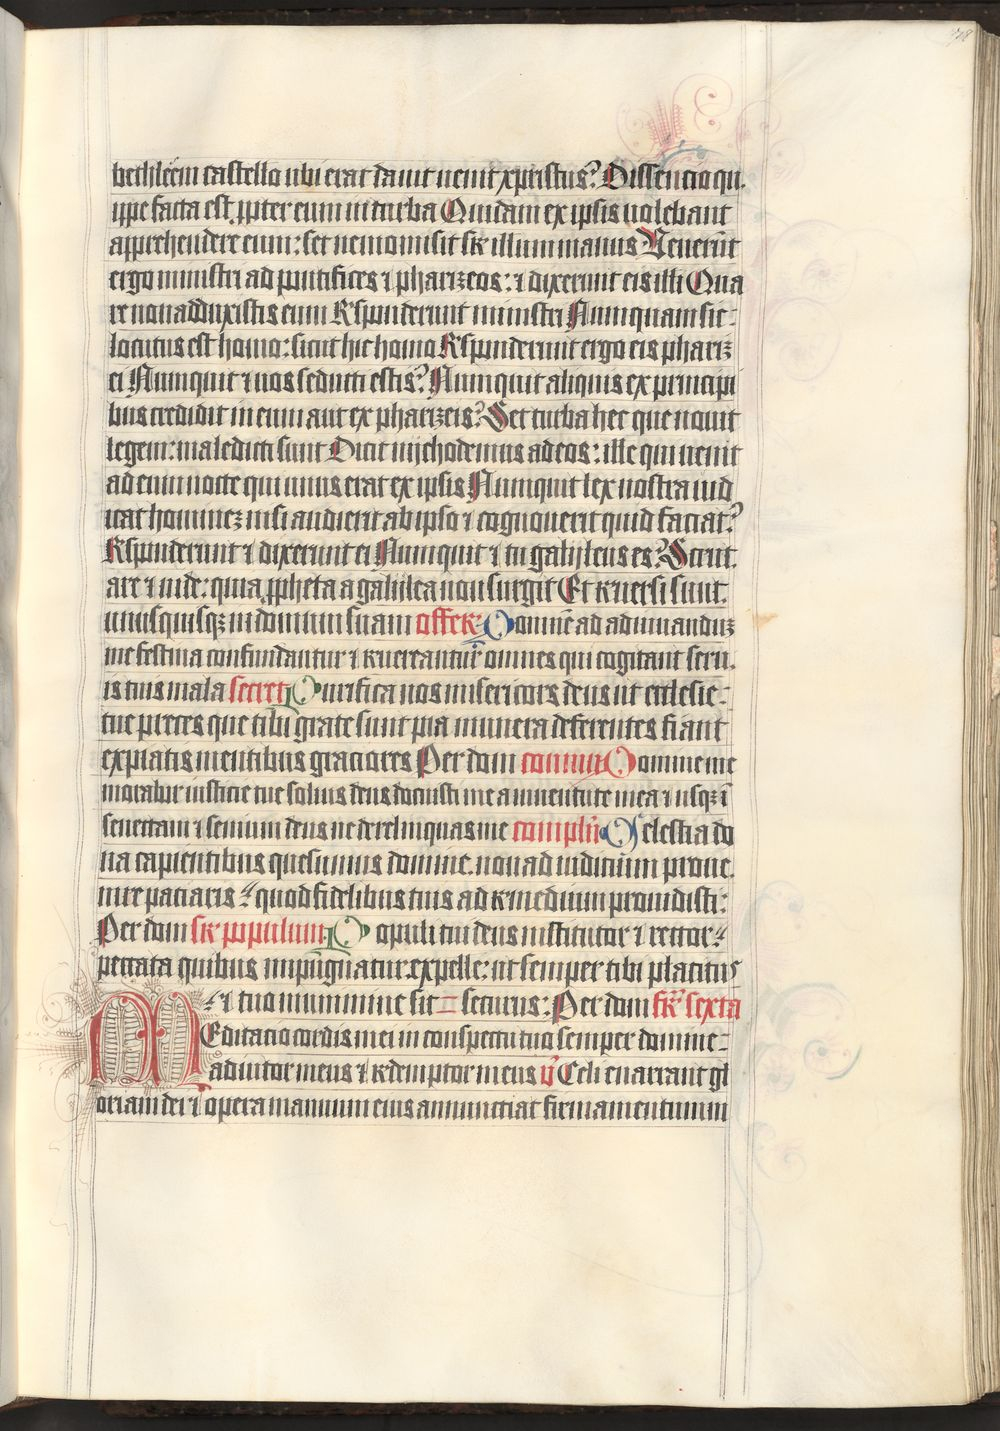 bethleem castello ubi erat dauit uenit xpristus? Dissencio qu
ippe facta est ppter eum in turba Quidam ex ipsis uolebant
apprehendere eum: set nemo misit sr illum manus Venerūt
ergo ministri ad pontifices ⁊ pharizeos: ⁊ dixerunt eis illi Qua
re non adduxistis eum Rspunderunt ministri Nunquam sic
locutus est homo: sicut hic homo Rspunderunt ergo eis phariz
ei Nunquit ⁊ uos seducti estis? Nunquit aliquis ex principi
bus credidit in eum aut ex pharizeis? Set turba hec que nouit
legem: maledicti sunt Dicit nychodemus ad eos: ille qui uenit
ad eum nocte qui unus erat ex ipsis Nunquit lex nostra iud
icat hominez nisi audierit ab ipso ⁊ cognouerit quid faciat?
Rspunderunt ⁊ dixerunt ei Nunquit ⁊ tu galyleus es? Scrut
are ⁊ uide: quia ppheta a galilea non surgit Et reuersi sunt
unusquisqz in domum suam offer Domine ad adiuuanduz
me festina confundantur ⁊ reuereantur omnes qui cogitant seru
is tuis mala secret Purifica nos misericors deus ut ecclesie
tue preces que tibi grate sunt pia munera deferentes fiant
expiatis mentibus graciores Per dom commu Domine me
morabor iusticie tue solius deus docuisti me a iuuentute mea ⁊ usqz ī
senectam ⁊ senium deus ne derelinquas me complēn Celestia do
na capientibus quesumus domine. non ad iudicium proue
nire paciaris quod fidelibus tuis ad remedium prouidisti:
Per dom sr populum Populi tui deus institutor ⁊ rector
peccata quibus inpugnatur expelle: ut semper tibi placitus
⁊ tuo munimine sit securus: Per dom fr sexta
Meditacio cordis mei in conspectu tuo semper domine
adiutor meus ⁊ redemptor meus v Celi enarrant gl
oriam dei ⁊ opera manuum eius annunctiat firmamentumm